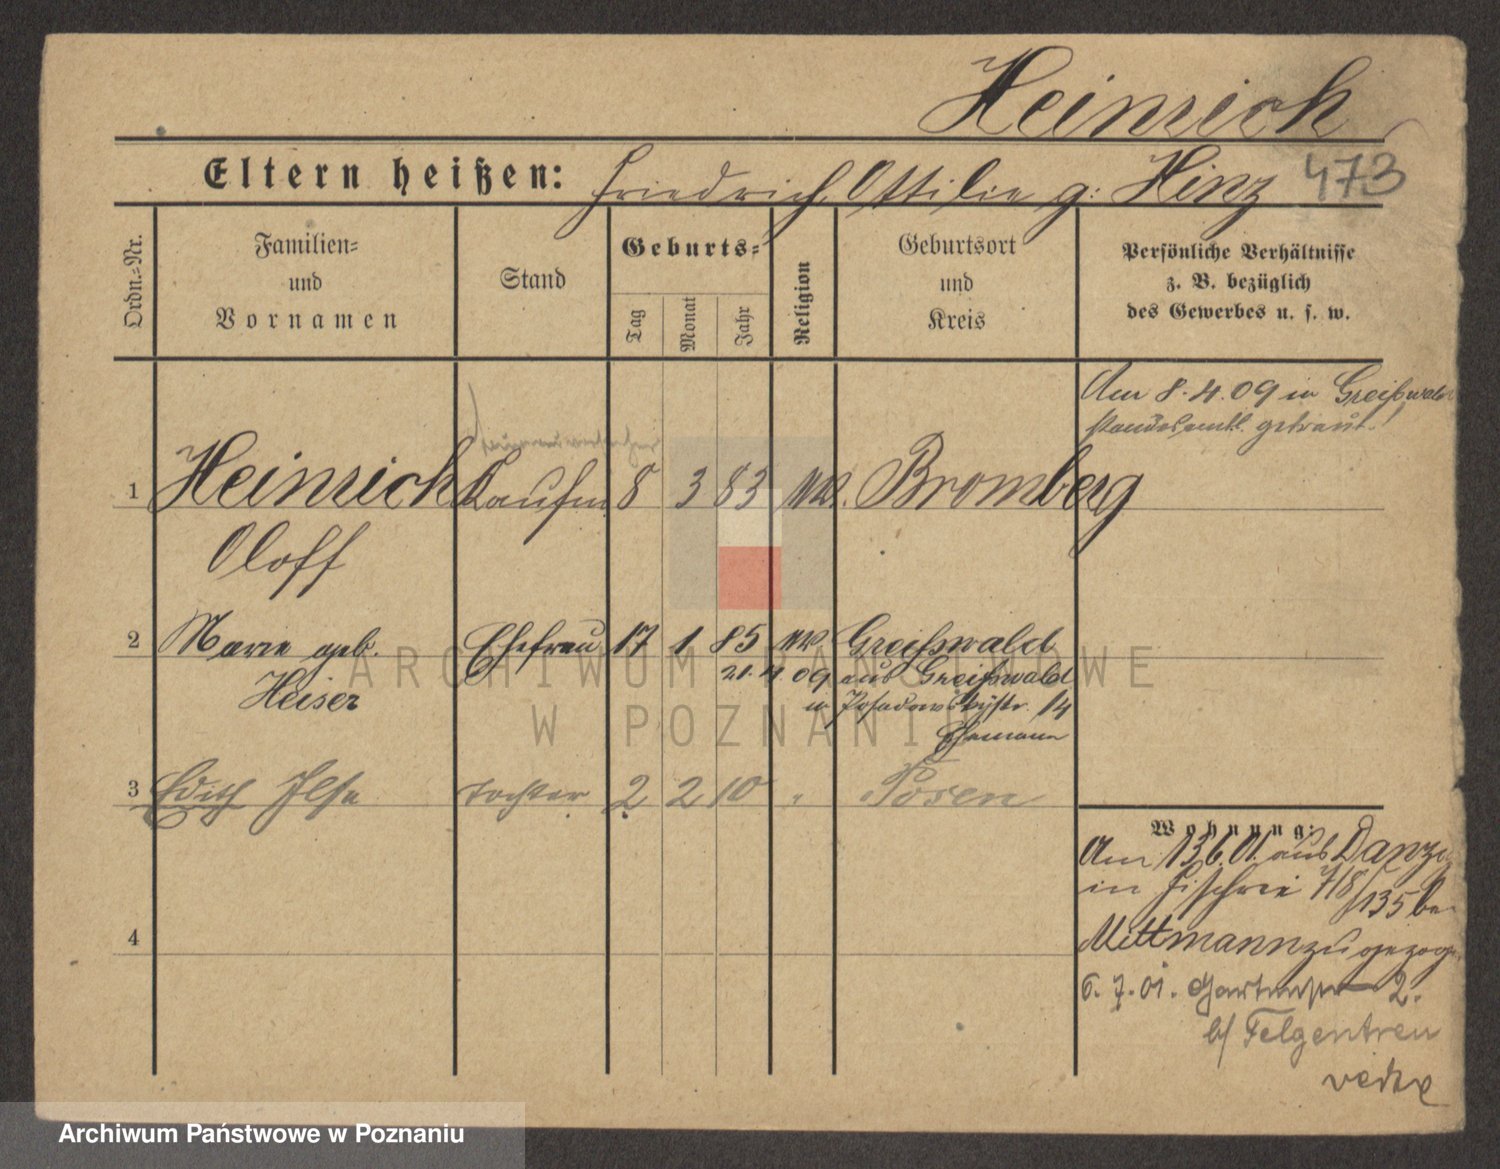 Heinrich
Eltern heißen: Friedrich, Ottilie g: Hinz 473
Ordn.=Nr.
Familien=
und
Vornamen
Stand
Geburts=
Tag
Monat
Jahr
Religion
Geburtsort
und
Kreis
Persönliche Verhältnisse
z. B. bezüglich
des Gewerbes u. s. w.
Am 8.4.09 in Greifswald
standesamtl. getraut.
1 Heinrich Kaufm 8 3 83 Bromberg
Oloff
2 Marie geb. Ehefrau 17 1 85 Greifswald
Heiser
21.4.09 aus Greifswald
Ehemann
3 Edith Ilse Tochter 2 2 10 " Posen
4
Wohnung:
Am 13.6.01. aus Danzig
in Fischerei 7/8
135 bei
Mittmann zugezogen
6.7.01. Gartenstr 2.
b/ Felgentreu
ARCHIWUM PAŃSTWOWE
W POZNANIU
Archiwum Państwowe w Poznaniu